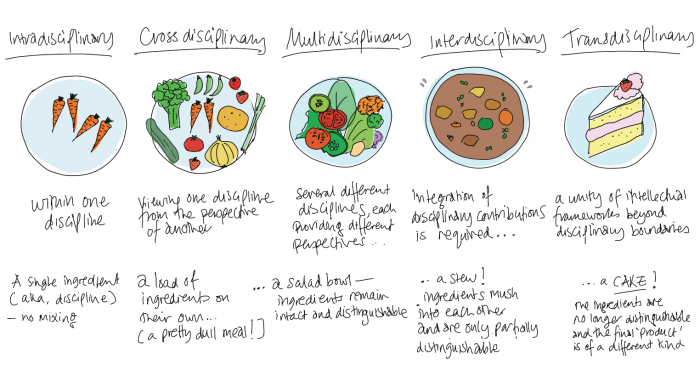 Intradisciplinary
within one
discipline
A single ingredient
(aka, discipline)
– no mixing
Crossdisciplinary
viewing one discipline
from the perspective
of another
a load of
ingredients on
their own...
(a pretty dull meal!)
Multidisciplinary
several different
disciplines, each
providing different
perspectives...
... a salad bowl —
ingredients remain
intact and distinguishable
Interdisciplinary
integration of
disciplinary contributions
is required...
... a stew!
ingredients mush
into each other
and are only partially
distinguishable
Transdisciplinary
a unity of intellectual
frameworks beyond
disciplinary boundaries
... a CAKE!
The ingredients are
no longer distinguishable
and the final 'product'
is of a different kind